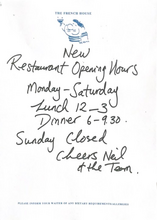 THE FRENCH HOUSE
New
Restaurant Opening Hours
Monday-Saturday
Lunch 12-3
Dinner 6-930.
Sunday Closed
Cheers Neil
& the Team.